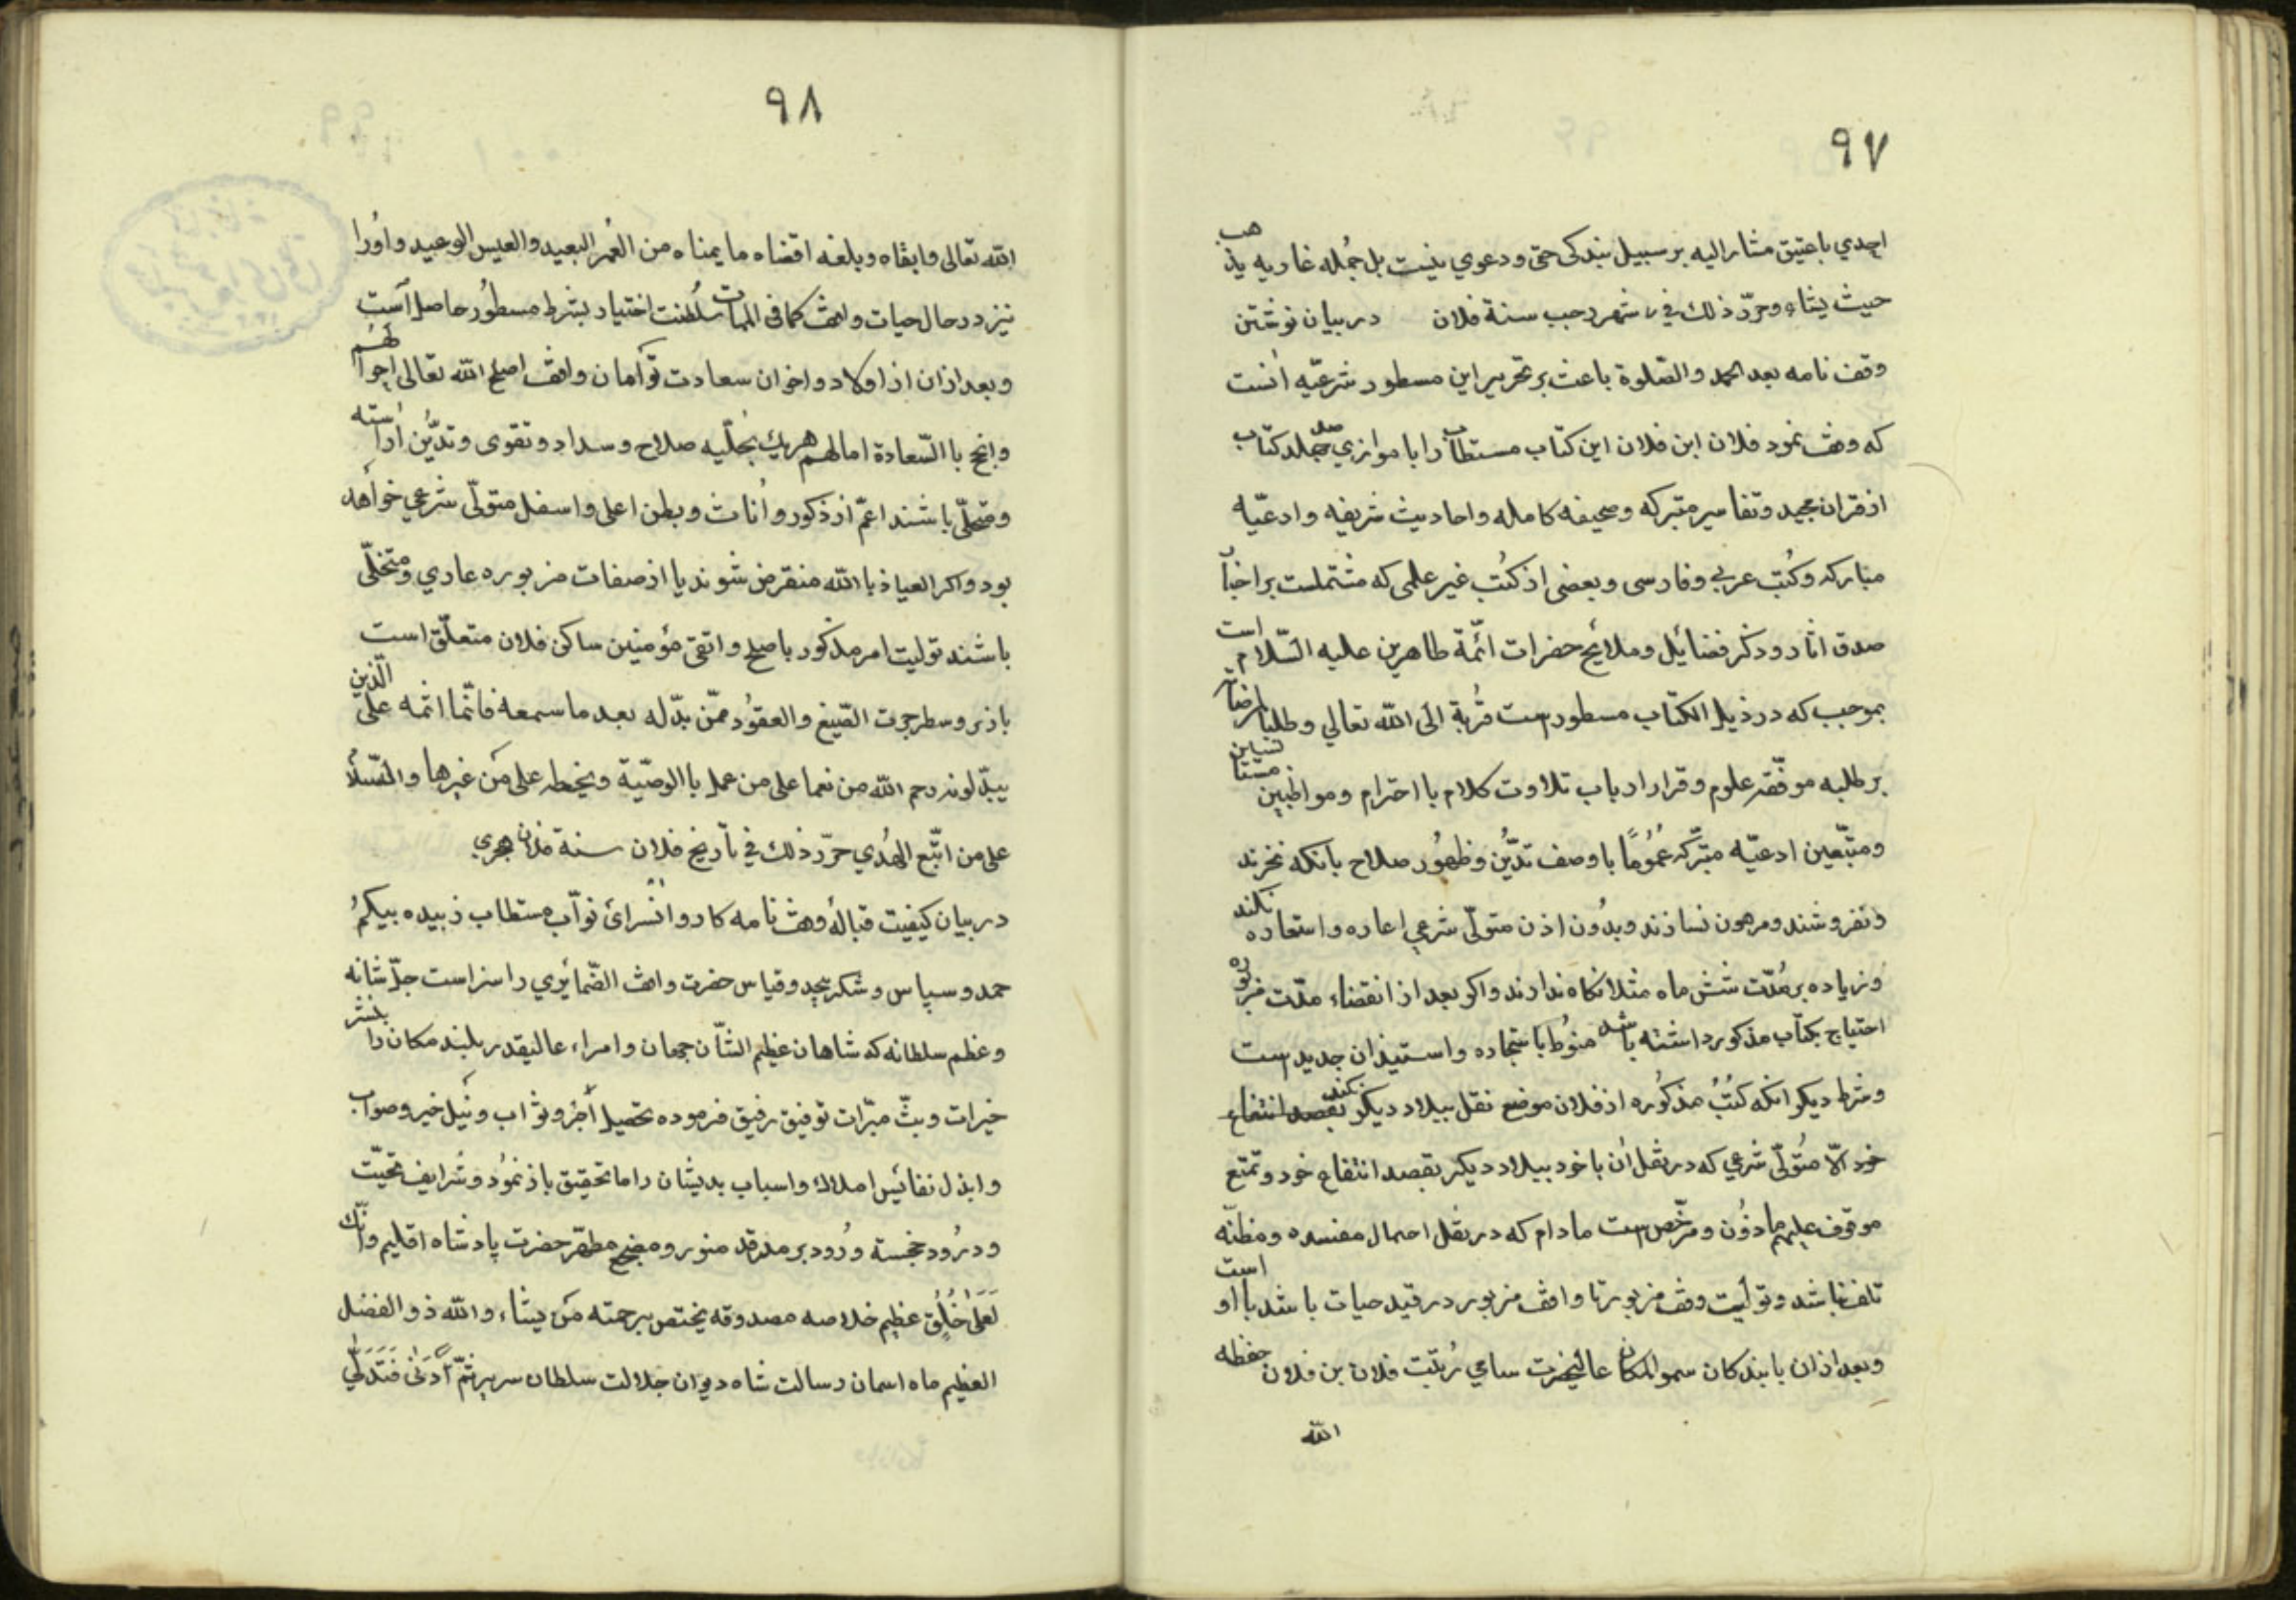 ٩٧
احدي باعتيق مشار اليه بر سبيل بندكى حتى ودعوي نيست بل جمله غاريه يذهب
حيث يشاء وحرّر ذلك في شهر رجب سنة فلان در بيان نوشتن
وقف نامه بعد الحمد والصّلوة باعث بر تحرير اين مسطور شرعيّه آنست
كه وقف نمود فلان ابن فلان اين كتاب مستطاب را با موازي صد جلد كتاب
از قران مجيد وتفاسير متبركه وصحيفه كامله واحاديث شريفه وادعيّه
مباركه وكتب عربي وفارسى وبعضى از كتب غير علمى كه مشتملست بر اخبار
صدق اثار وذكر فضائل ومدايح حضرات ائمّة طاهرين عليه السّلام است
بموجب كه در ذيل الكتاب مسطورست قربة الى الله تعالي وطلبا لمرضاته
بر طلبه موفّقه علوم وقرار ارباب تلاوت كلام با احترام ومواظبين
ومتبّعين ادعيّه متبّركه عُمُومًا با وصف تديُّن وظهُور صلاح بانكه نخرند
ونفروشند ومرهون نسازند وبدُون اذن متولّى شرعي إعاره واستعاره نكند
وزياده بر مُدّت شش ماه مثلا نكاه ندارند واكر بعد از انقضاء مدّت مزبوره
احتياج بكتاب مذكور داشته باشد منوُط باستجاره واستيذان جديدست
وشرط ديكر انكه كتُبُ مذكوُره از فلان موضع نقل ببلاد ديكر نكند بقصد انتفاع
خود الّا متُولّى شرعي كه در نقل ان با خود ببلاد ديكر بقصد انتفاع خود وتمتع
موقوف عليهم ماذوُن ومرخّصست مادام كه در نقل احمال مفسده ومظنّه
تلف نباشد وتوليت وقف مزبور تا واقف مزبور در قيد حيات باشد با او است
وبعد از ان با بندكان سمو المكان عاليحضرت سامي رُتبت فلان بن فلان حفظه
الله
٩٨
الله تعالى وابقاه وبلغه اقضاه ما يمناه من العُمر البعيد والعيس الوعيد واوُرا
نيز در حال حيات واقف كما فى الممات سلطنت اختيار بشرط مسطوُر حاصل است
وبعد از ان از اولاد واخوان سعادت توأمان واقف اصلح الله تعالى احوالهم
وانجح باالسّعادة امالهم هريك بحُلّيه صلاح وسداد وتقوى وتديُّن آراسته
ومتحلّى باشند اعمّ از ذكور واُناث وبطن اعلى واسفل متولّى شرعي خواهد
بود واكر العياذ باالله منقرض شوند يا از صفات مزبوره عاري ومتخلّى
باشند توليت امر مذكور باصلح واتقى مؤمنين ساكن فلان متعلّق است
باذر وسطر جرت الصّيغ والعقوُد ممّن بدّله بعد ما سمعه فانّما اثمه على الّذين
يبدّلونه رحم الله من نعما على من عمل باالوصيّة ويخط على من غيرها والسّلام
على من اتبّع الهُدي حرّر ذلك في تأريخ فلان سنة فلان هجري
در بيان كيفيت قبالهُ وقف نامه كاروانسرائ نوآب مستطاب زبيده بيكم
حمد وسپاس وشكر بيحد وقياس حضرت واقف الضّمايري را سزاست جلّ شانه
وعظم سلطانه كه شاهان عظيم الشّأن جمعان وامراء عاليقدر بلند مكان را بنشر
خيرات وبثّ مبرّات توفيق رفيق فرموده تحصيل أجر وثواب ونيل خير وصواب
وابذل نفائيس املاك واسباب بديشان راما تحقيق باز نمُود وشرايف تحيّت
ودرُود خجسته ورُود بر مرقد منور ومضجع مطهّر حضرت پادشاه اقليم وانّك
لَعَلىٰ خُلُقٍ عظيم خلاصه مصدوقه يختص برحمته من يشاء والله ذو الفضل
العظيم ماه اسمان رسالت شاه ديوان جلالت سلطان سرير ثمّ أدنى فَتَدَلّى